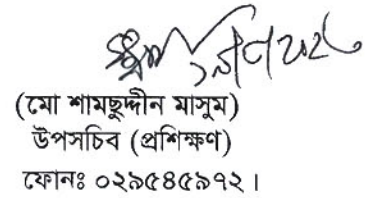 (মো শামছুদ্দীন মাসুম)
উপসচিব (প্রশিক্ষণ)
ফোনঃ ০২৯৫৪৫৯৭২।